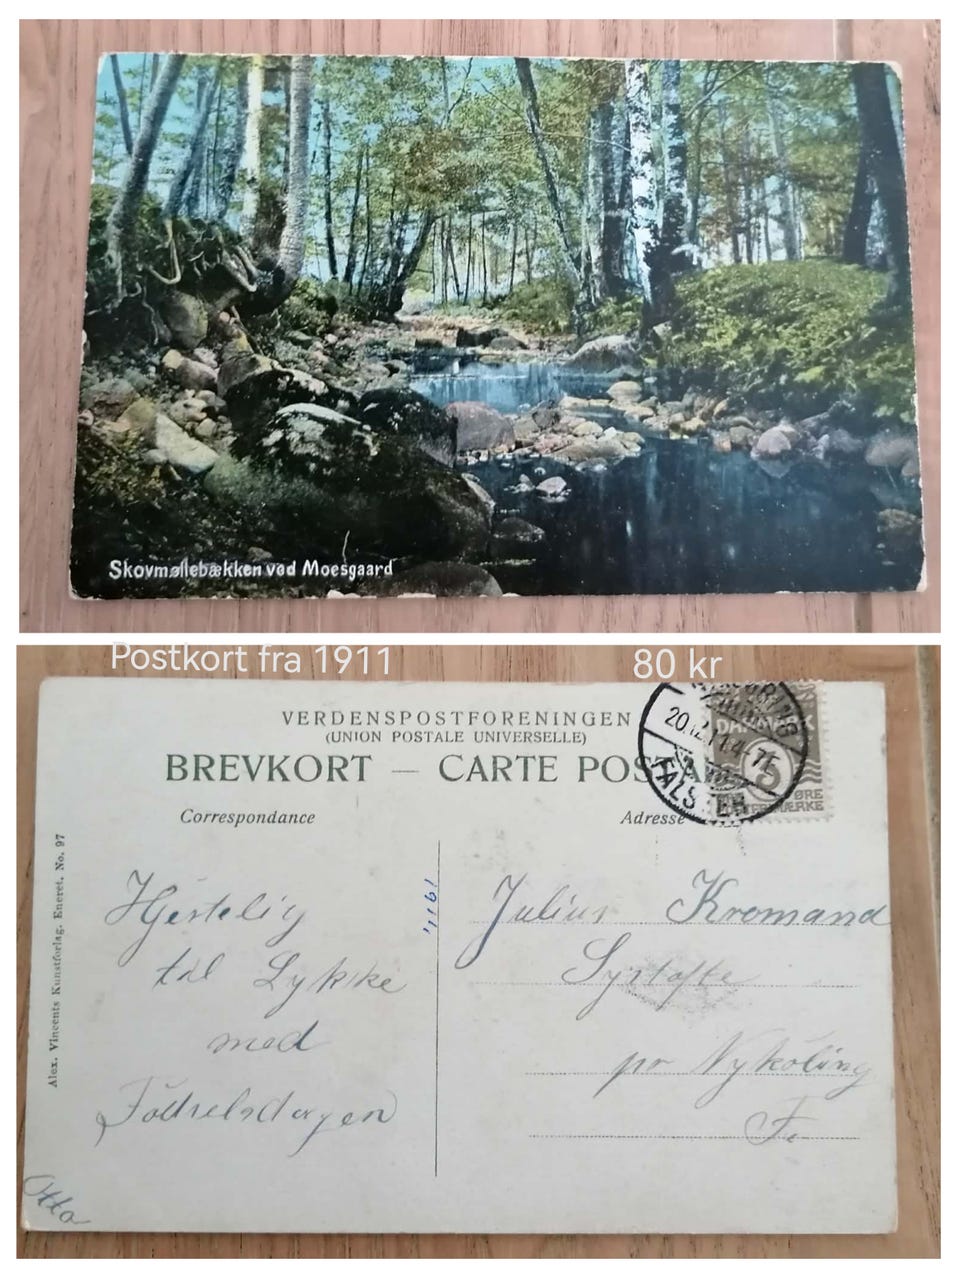 Skovmøllebækken ved Moesgaard
Postkort fra 1911
80 kr
VERDENSPOSTFORENINGEN
(UNION POSTALE UNIVERSELLE)
BREVKORT — CARTE
DANMARK
5
ØRE
20.12.11.4-75
FALSTER
Correspondance
Adresse
Alex. Vincents Kunstforlag. Eneret. No. 97
Hjertelig
til Lykke
med
Födselsdagen
Otto
1911
Julius Kromand
Systofte
pr Nyköbing
F.